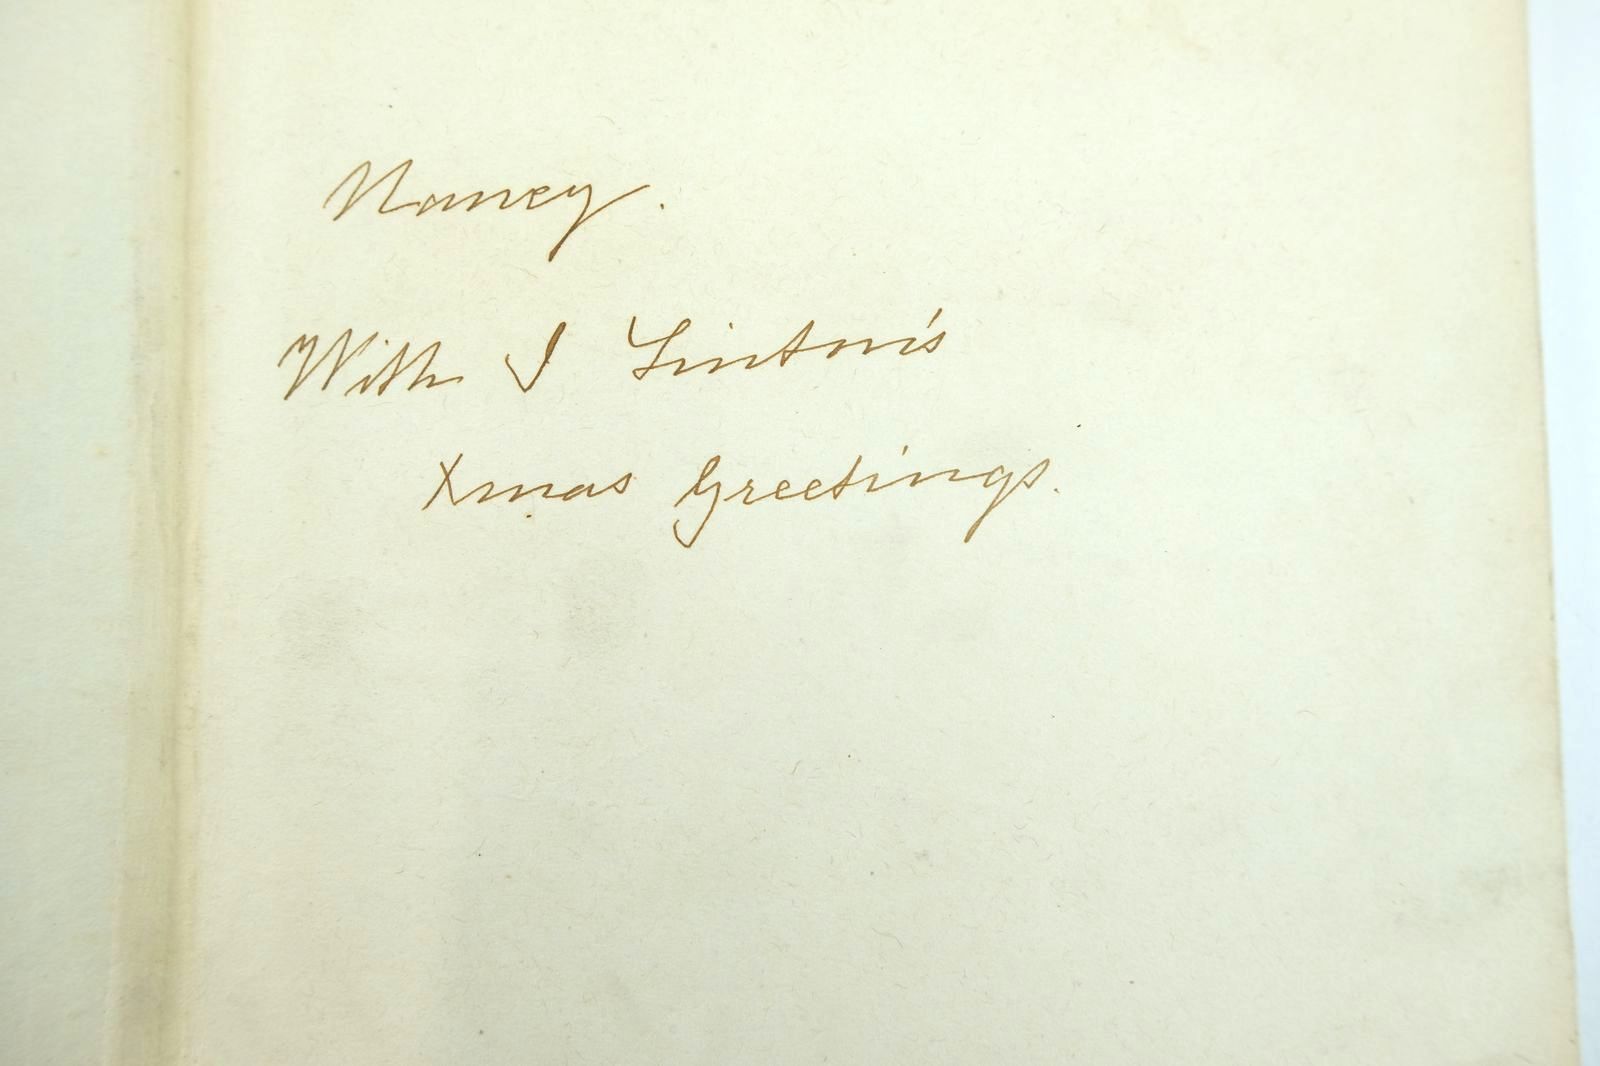 Nancy.
With J Linton's
Xmas Greetings.